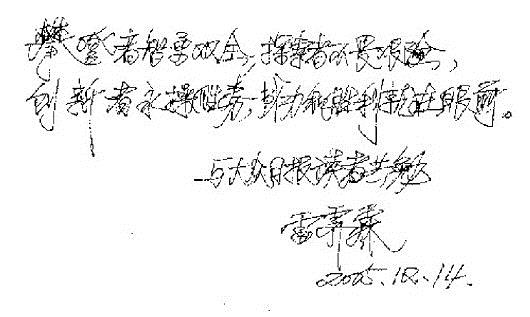 攀登者智勇双全,探索者不畏艰险,
创新者永操胜券,成功和胜利就在眼前。
—与大众日报读者共勉
雷霁霖
2005.12.14.